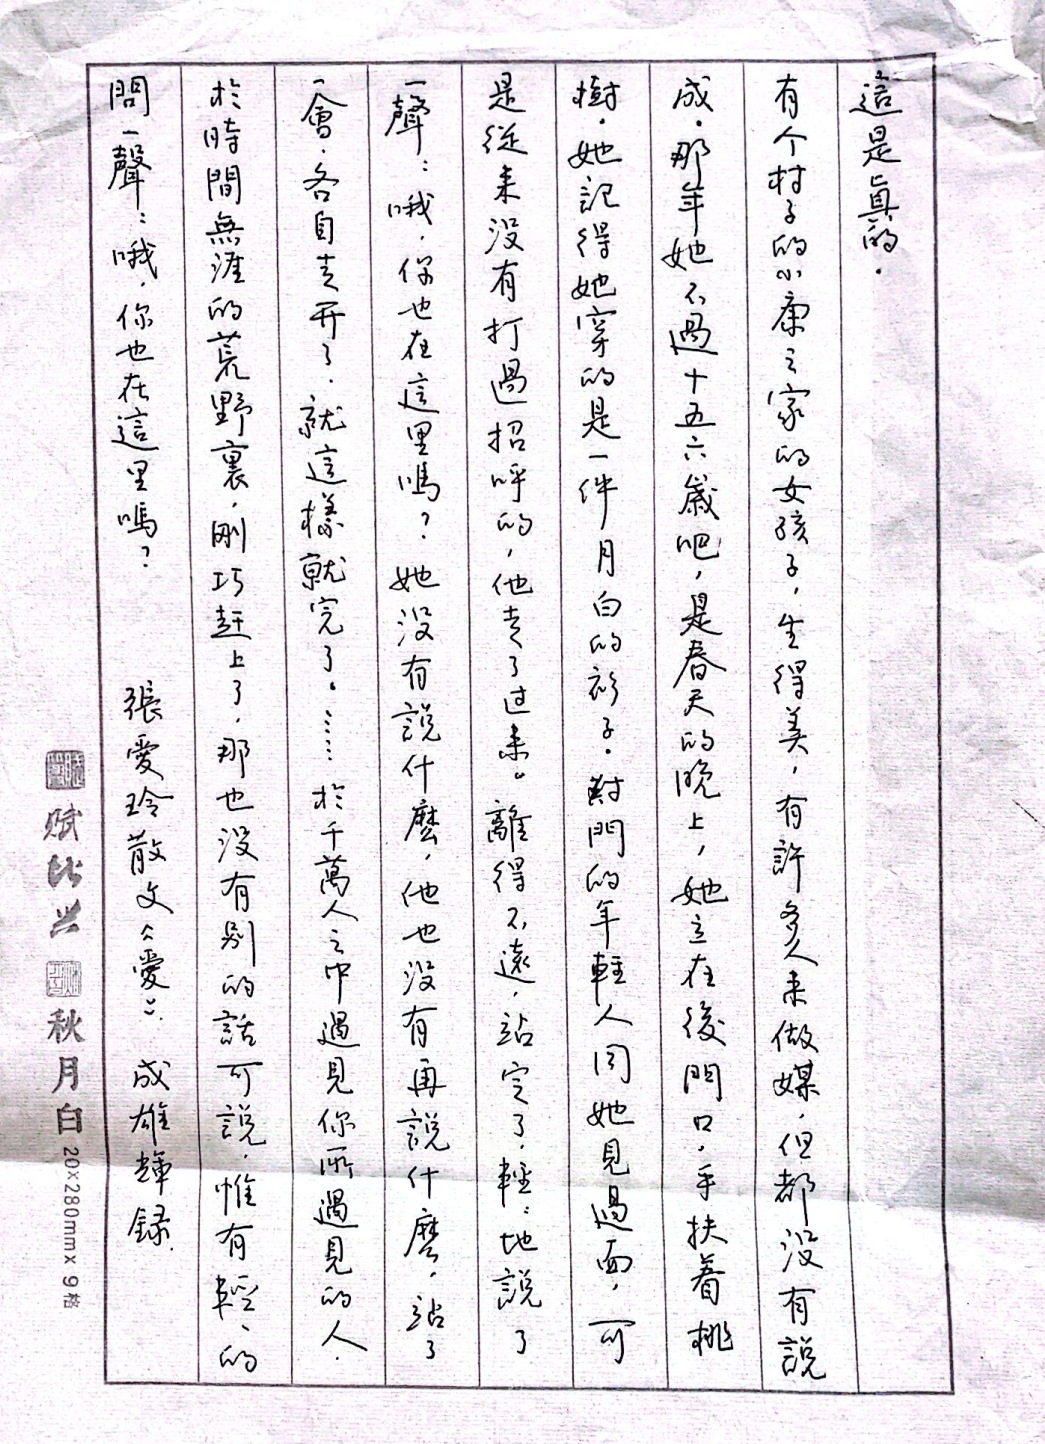 這是真的.
有个村子的小康之家的女孩子，生得美，有許多人来做媒，但都没有説
成．那年她不過十五六歲吧，是春天的晚上，她立在後門口，手扶着桃
樹．她記得她穿的是一件月白的衫子．對門的年輕人同她見過面，可
是從来没有打過招呼的，他走了过来。離得不遠，站定了，輕:地説了
一聲：哦，你也在這里嗎？她没有説什麽，他也没有再説什麽，站了
一會．各自走开了．就這樣就完了。……於千萬人之中遇見你所遇見的人．
於時間無涯的荒野裏，刚巧赶上了，那也没有别的話可説，惟有輕、的
問一聲：哦，你也在這里嗎？ 張愛玲散文《愛》. 成雄輝録.
赋比兴 秋月白 20×280mm× 9格